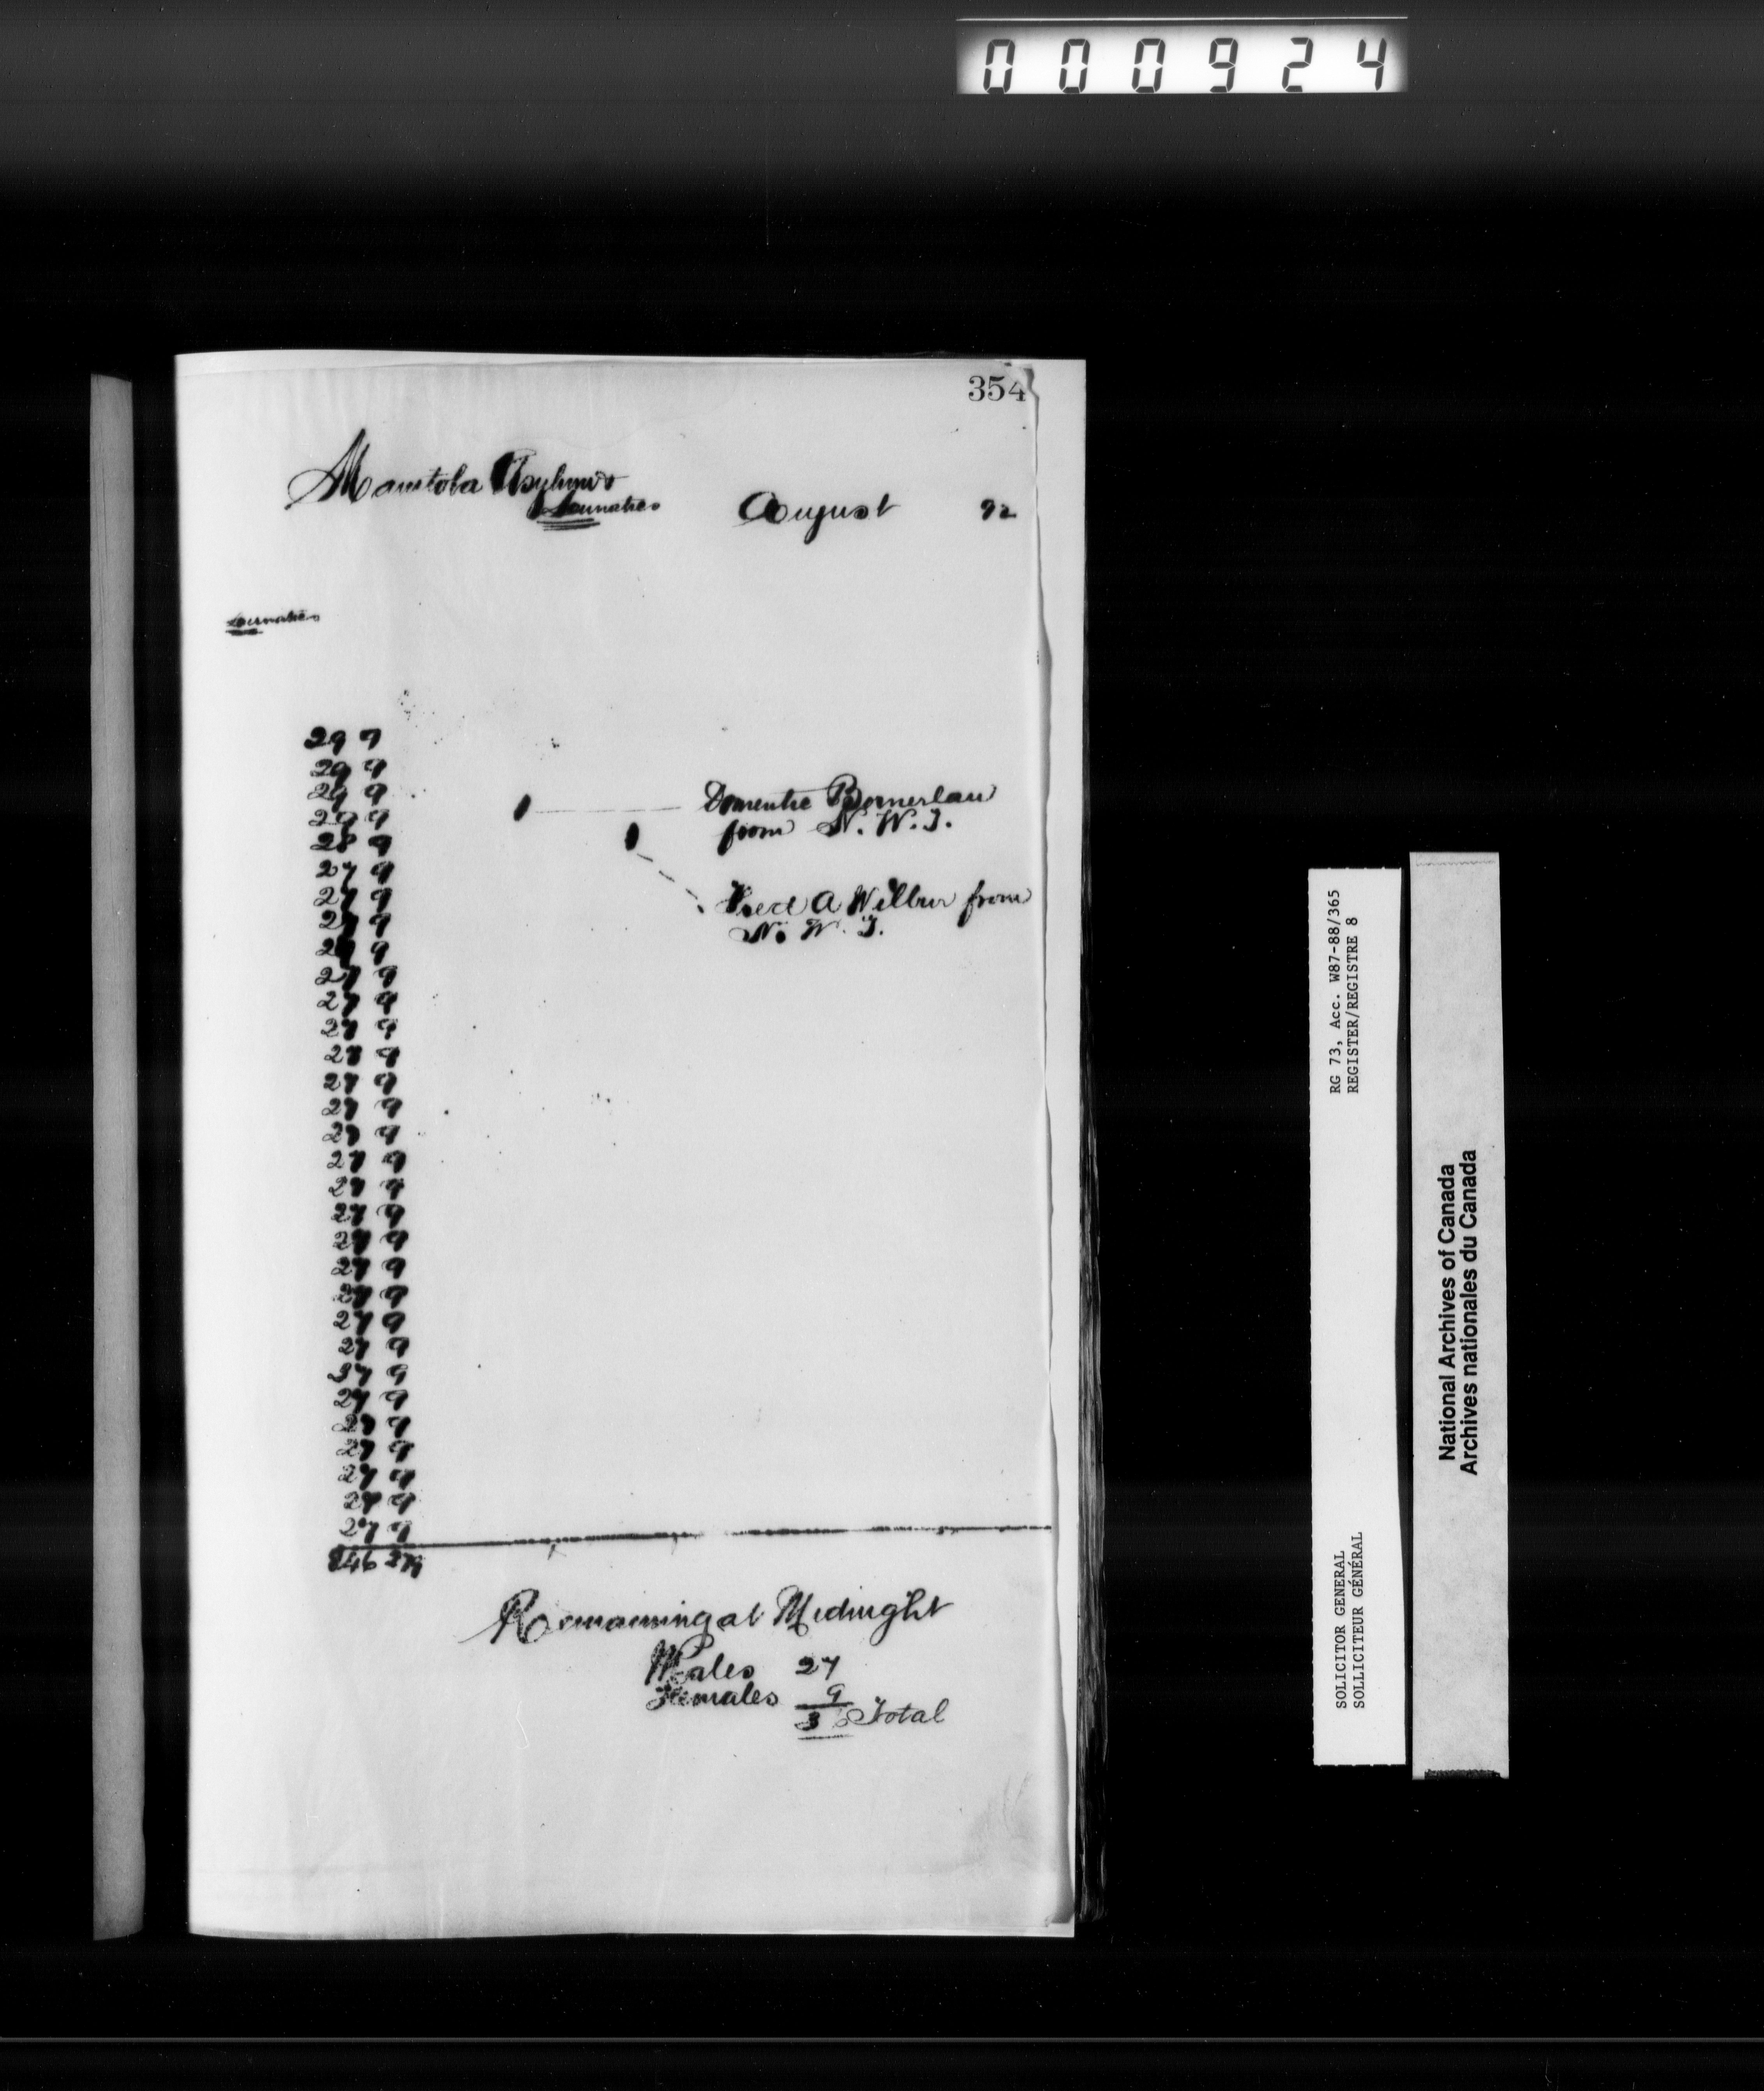 000924
354
Manitoba Asylum
Lunatics
August 92
Lunatics
29 9
29 9
29 9
29 9
28 9
27 9
27 9
27 9
27 9
27 9
27 9
27 9
27 9
27 9
27 9
27 9
27 9
27 9
27 9
27 9
27 9
27 9
27 9
27 9
27 9
27 9
27 9
27 9
27 9
27 9
27 9
846 279
from N. W. T.
Fred A Wilbur from
N. W. T.
Remaining at Midnight
Males 27
Females 9
36 Total
RG 73, Acc. W87-88/365
REGISTER/REGISTRE 8
SOLICITOR GENERAL
SOLLICITEUR GÉNÉRAL
National Archives of Canada
Archives nationales du Canada